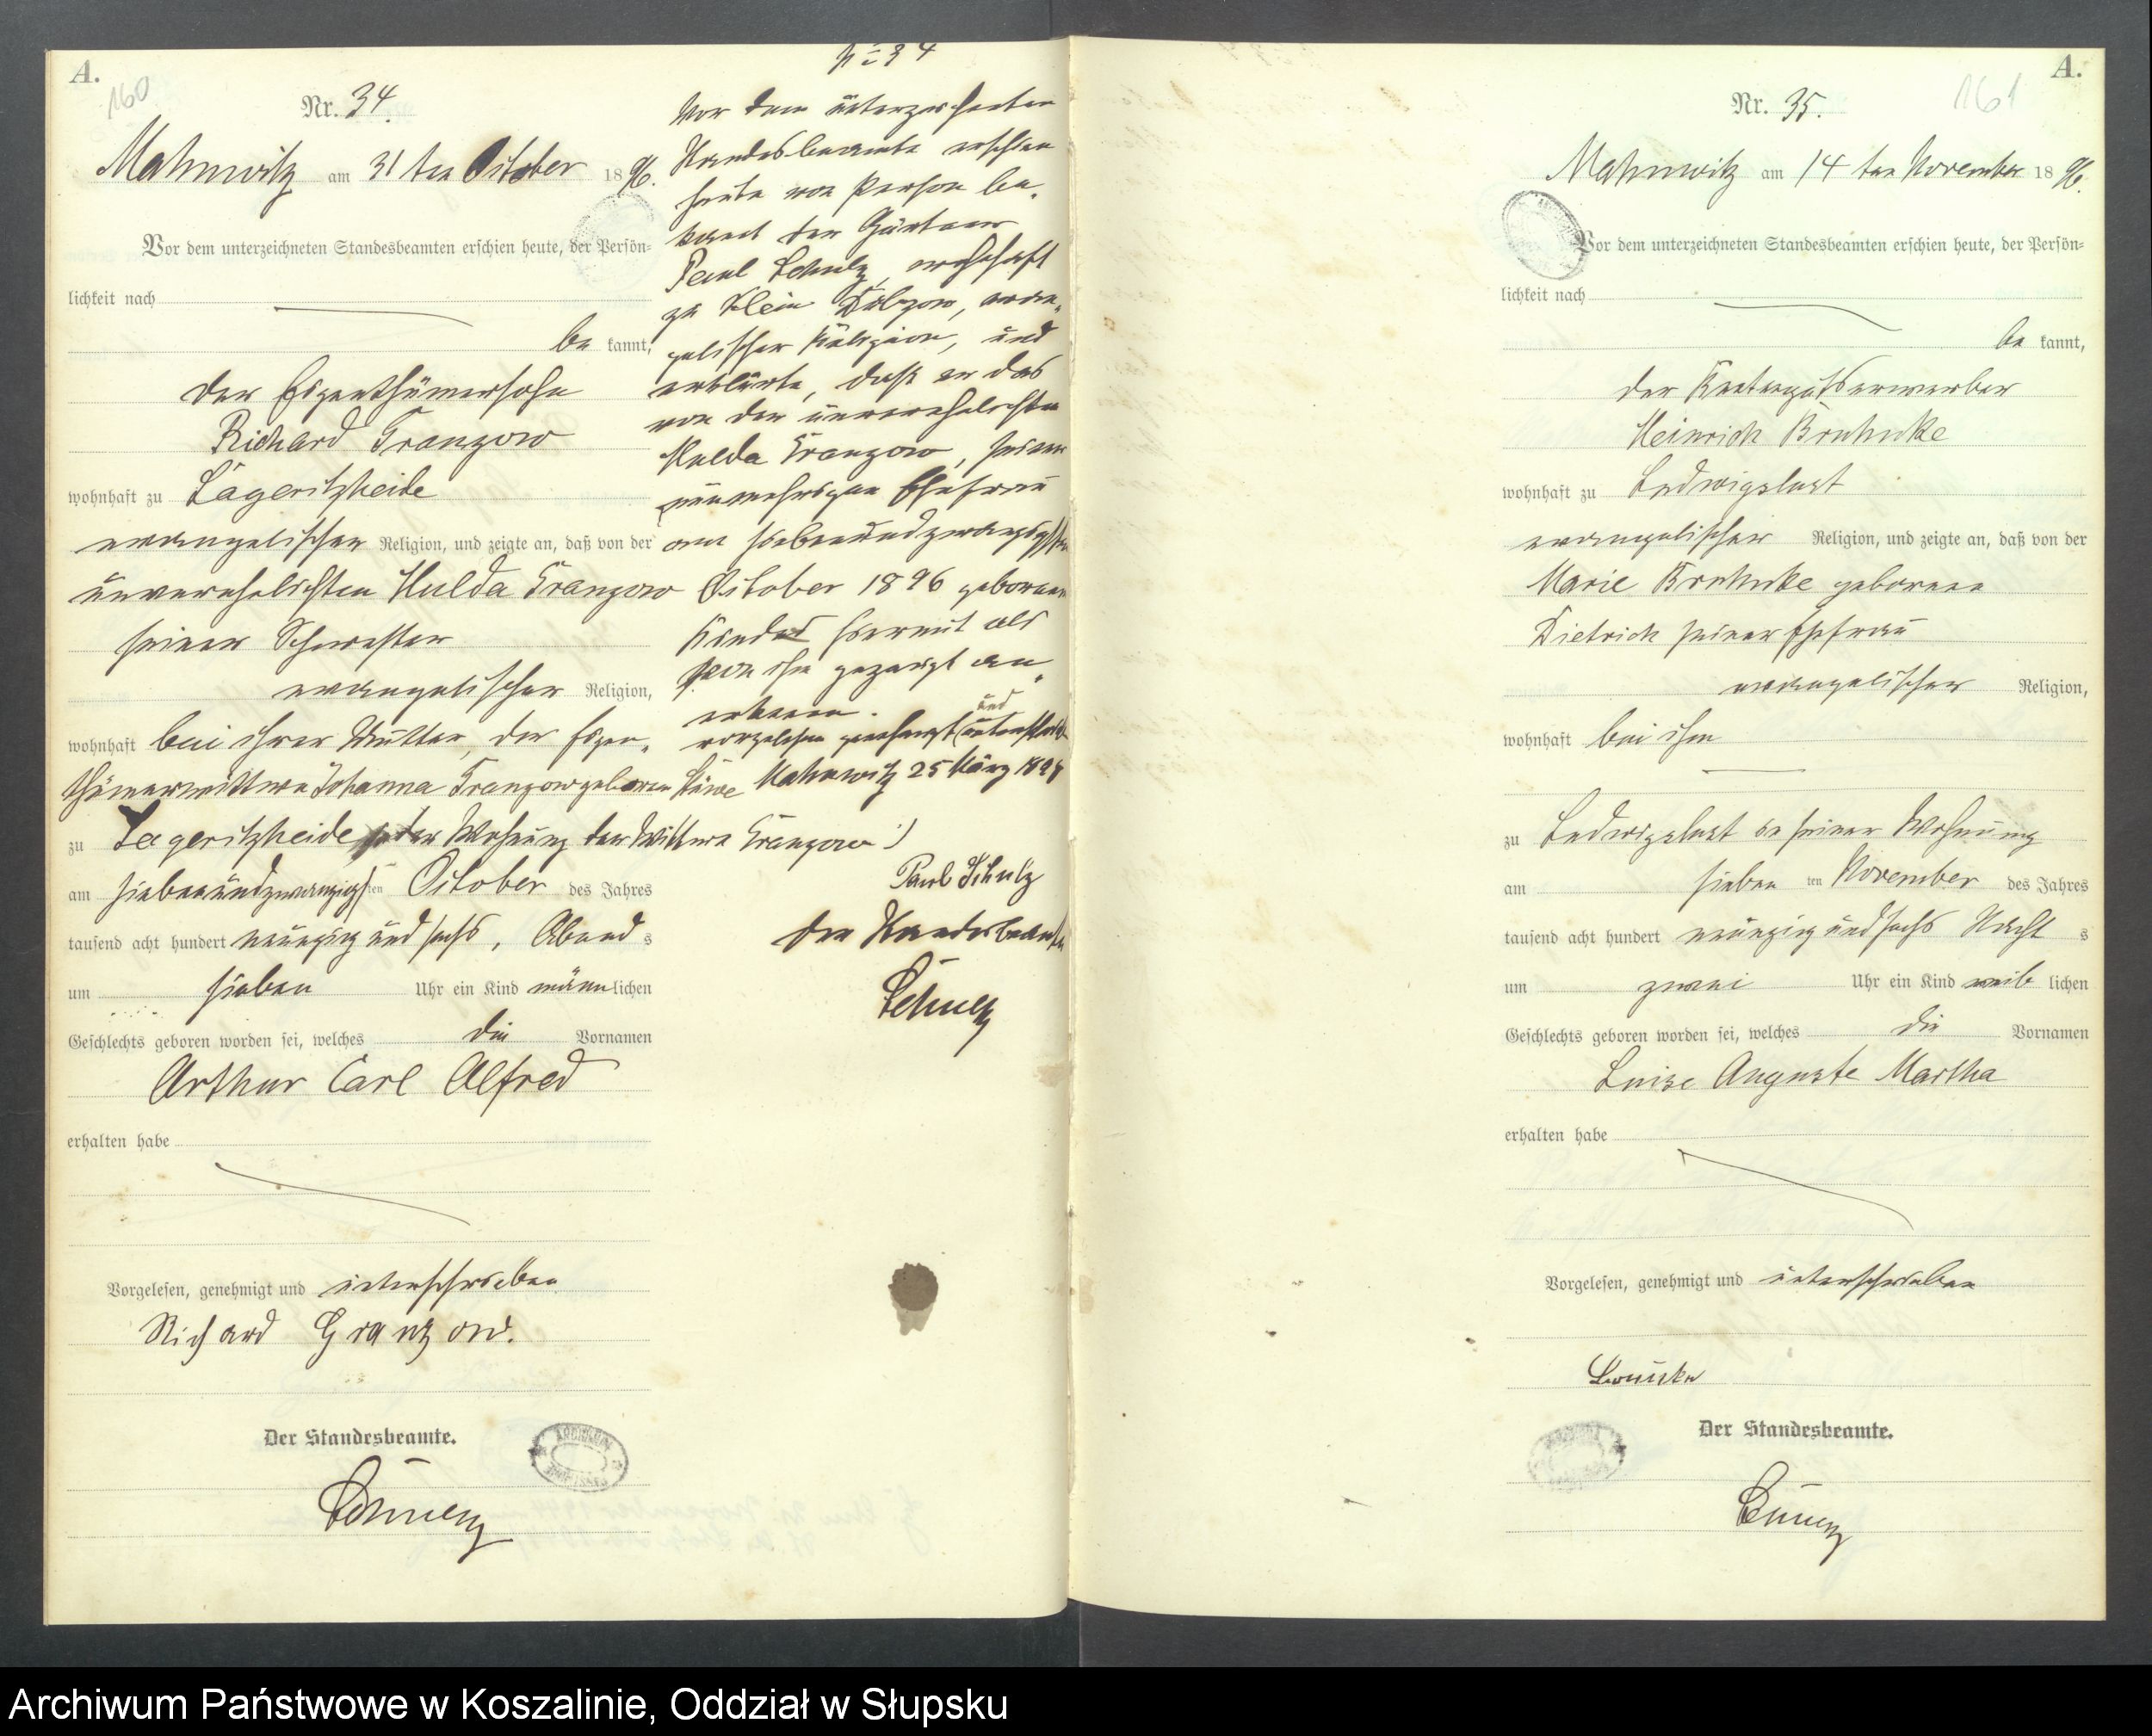 A.
160
Nr. 34.
Mahnwitz am 31 ten October 1896.
Vor dem unterzeichneten Standesbeamten erschien heute, der Persön=
lichkeit nach
be kannt,
der Eigenthümersohn
Richard Granzow
wohnhaft zu Lageritzheide
evangelischer Religion, und zeigte an, daß von der
unverehelichten Hulda Granzow
seiner Schwester
evangelischer Religion,
wohnhaft bei ihrer Mutter, der Eigen=
thümerwittwe Johanna Granzow geboren
zu Lageritzheide in der Wohnung der Wittwe Granzow
am siebenundzwanzigsten October des Jahres
tausend acht hundert neunzig und sechs, Abends
um sieben Uhr ein Kind männlichen
Geschlechts geboren worden sei, welches die Vornamen
Arthur Carl Alfred
erhalten habe
Vorgelesen, genehmigt und unterschrieben
Richard Granzow.
Der Standesbeamte.
Schulz
No 34
Vor dem unterzeichneten
Standesbeamte erschien
heute von Person be=
kannt der Gärtner
Paul Schulz, wohnhaft
zu Klein Dübzow, evan=
gelischer Religion, und
erklärte, daß er das
von der unverehelichten
Hulda Granzow, seiner
nunmehrigen Ehefrau
am siebenundzwanzigsten
October 1896 geborene
Kindes hiermit als
von ihm gezeugt an=
erkenne.
vorgelesen genehmigt und
Mahnwitz 25 März
Paul Schulz
der Standesbeamte
Schulz
A.
161
Nr. 35.
Mahnwitz am 14 ten November 1896.
Vor dem unterzeichneten Standesbeamten erschien heute, der Persön=
lichkeit nach
be kannt,
der Rentengutserwerber
Heinrich Bruhnke
wohnhaft zu Ludwigslust
evangelischer Religion, und zeigte an, daß von der
Marie Bruhnke geborene
Dietrich seiner Ehefrau
evangelischer Religion,
wohnhaft bei ihm
zu Ludwigslust in seiner Wohnung
am sieben ten November des Jahres
tausend acht hundert neunzig und sechs Nachts
um zwei Uhr ein Kind weib lichen
Geschlechts geboren worden sei, welches die Vornamen
Luise Auguste Martha
erhalten habe
Vorgelesen, genehmigt und unterschrieben
Der Standesbeamte.
Schulz
Archiwum Państwowe w Koszalinie, Oddział w Słupsku